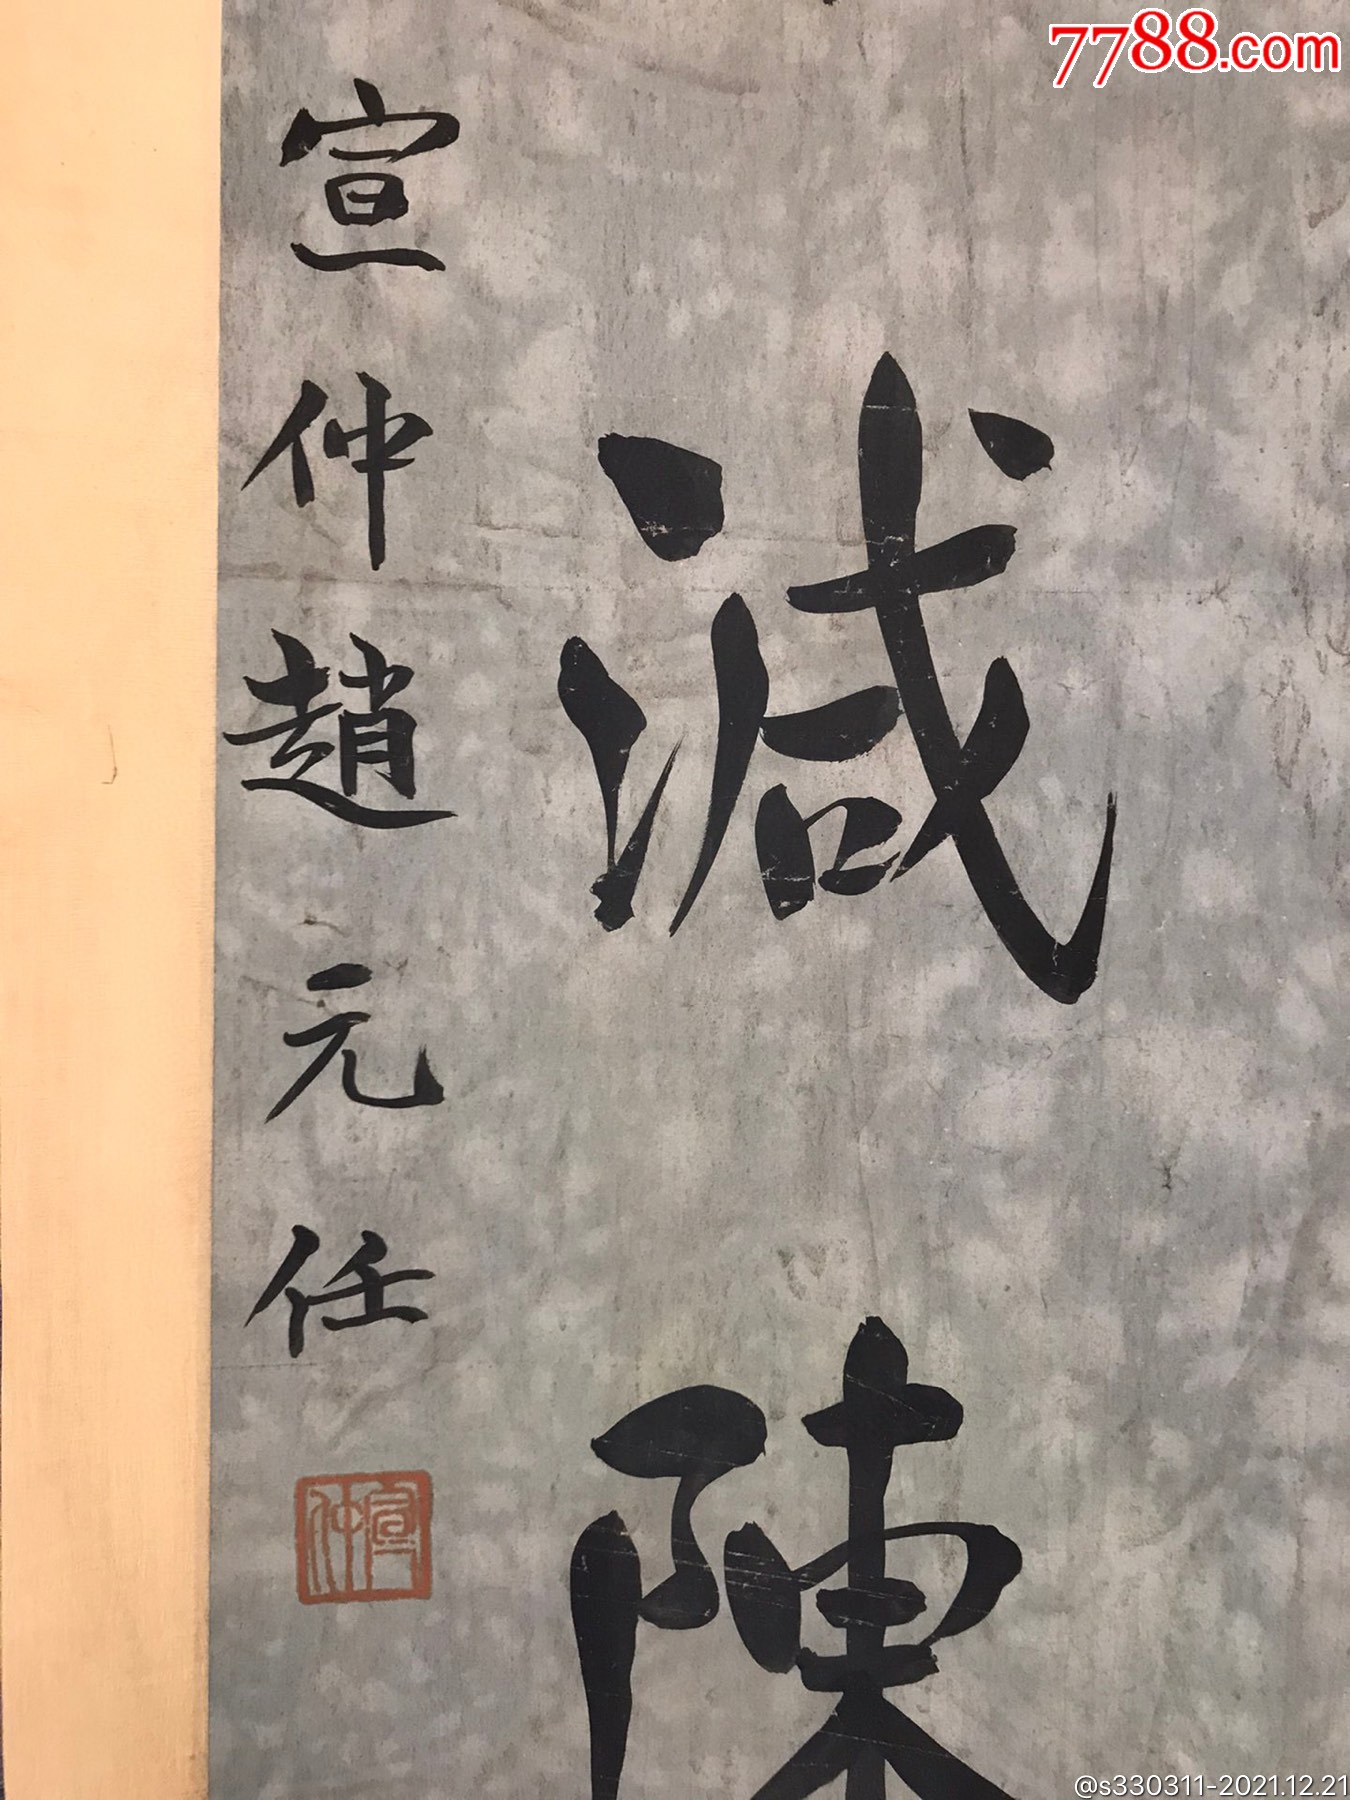 7788.com
減陳
宣仲趙元任
宣仲
@s330311-2021.12.21